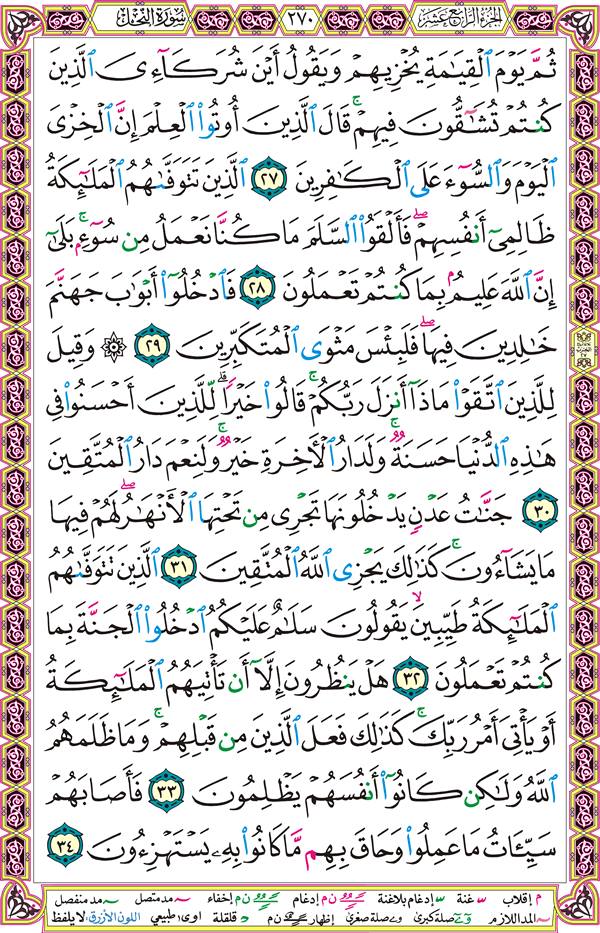 سُورَةُ النَّحْلِ
٢٧٠
الجزء الرابع عشر
ثُمَّ يَوْمَ ٱلْقِيَٰمَةِ يُخْزِيهِمْ وَيَقُولُ أَيْنَ شُرَكَآءِىَ ٱلَّذِينَ
كُنتُمْ تُشَٰٓقُّونَ فِيهِمْ ۚ قَالَ ٱلَّذِينَ أُوتُوا۟ ٱلْعِلْمَ إِنَّ ٱلْخِزْىَ
ٱلْيَوْمَ وَٱلسُّوٓءَ عَلَى ٱلْكَٰفِرِينَ ٢٧ ٱلَّذِينَ تَتَوَفَّىٰهُمُ ٱلْمَلَٰٓئِكَةُ
ظَالِمِىٓ أَنفُسِهِمْ ۖ فَأَلْقَوُا۟ ٱلسَّلَمَ مَا كُنَّا نَعْمَلُ مِن سُوٓءٍۭ ۚ بَلَىٰٓ
إِنَّ ٱللَّهَ عَلِيمٌۢ بِمَا كُنتُمْ تَعْمَلُونَ ٢٨ فَٱدْخُلُوٓا۟ أَبْوَٰبَ جَهَنَّمَ
خَٰلِدِينَ فِيهَا ۖ فَلَبِئْسَ مَثْوَى ٱلْمُتَكَبِّرِينَ ٢٩ ۞ وَقِيلَ
لِلَّذِينَ ٱتَّقَوْا۟ مَاذَآ أَنزَلَ رَبُّكُمْ ۚ قَالُوا۟ خَيْرًا ۗ لِّلَّذِينَ أَحْسَنُوا۟ فِى
هَٰذِهِ ٱلدُّنْيَا حَسَنَةٌ ۚ وَلَدَارُ ٱلْءَاخِرَةِ خَيْرٌ ۚ وَلَنِعْمَ دَارُ ٱلْمُتَّقِينَ
٣٠ جَنَّٰتُ عَدْنٍ يَدْخُلُونَهَا تَجْرِى مِن تَحْتِهَا ٱلْأَنْهَٰرُ ۖ لَهُمْ فِيهَا
مَا يَشَآءُونَ ۚ كَذَٰلِكَ يَجْزِى ٱللَّهُ ٱلْمُتَّقِينَ ٣١ ٱلَّذِينَ تَتَوَفَّىٰهُمُ
ٱلْمَلَٰٓئِكَةُ طَيِّبِينَ ۙ يَقُولُونَ سَلَٰمٌ عَلَيْكُمُ ٱدْخُلُوا۟ ٱلْجَنَّةَ بِمَا
كُنتُمْ تَعْمَلُونَ ٣٢ هَلْ يَنظُرُونَ إِلَّآ أَن تَأْتِيَهُمُ ٱلْمَلَٰٓئِكَةُ
أَوْ يَأْتِىَ أَمْرُ رَبِّكَ ۚ كَذَٰلِكَ فَعَلَ ٱلَّذِينَ مِن قَبْلِهِمْ ۚ وَمَا ظَلَمَهُمُ
ٱللَّهُ وَلَٰكِن كَانُوٓا۟ أَنفُسَهُمْ يَظْلِمُونَ ٣٣ فَأَصَابَهُمْ
سَيِّـَٔاتُ مَا عَمِلُوا۟ وَحَاقَ بِهِم مَّا كَانُوا۟ بِهِۦ يَسْتَهْزِءُونَ ٣٤
م إقلاب غنة إدغام بلاغنة ن م إدغام ن م إخفاء مد متصل مد منفصل
المد اللازم صلة كبرى صلة صغرى إظهار ن م قلقلة اوى: طبيعي اللون الأزرق: لا يلفظ